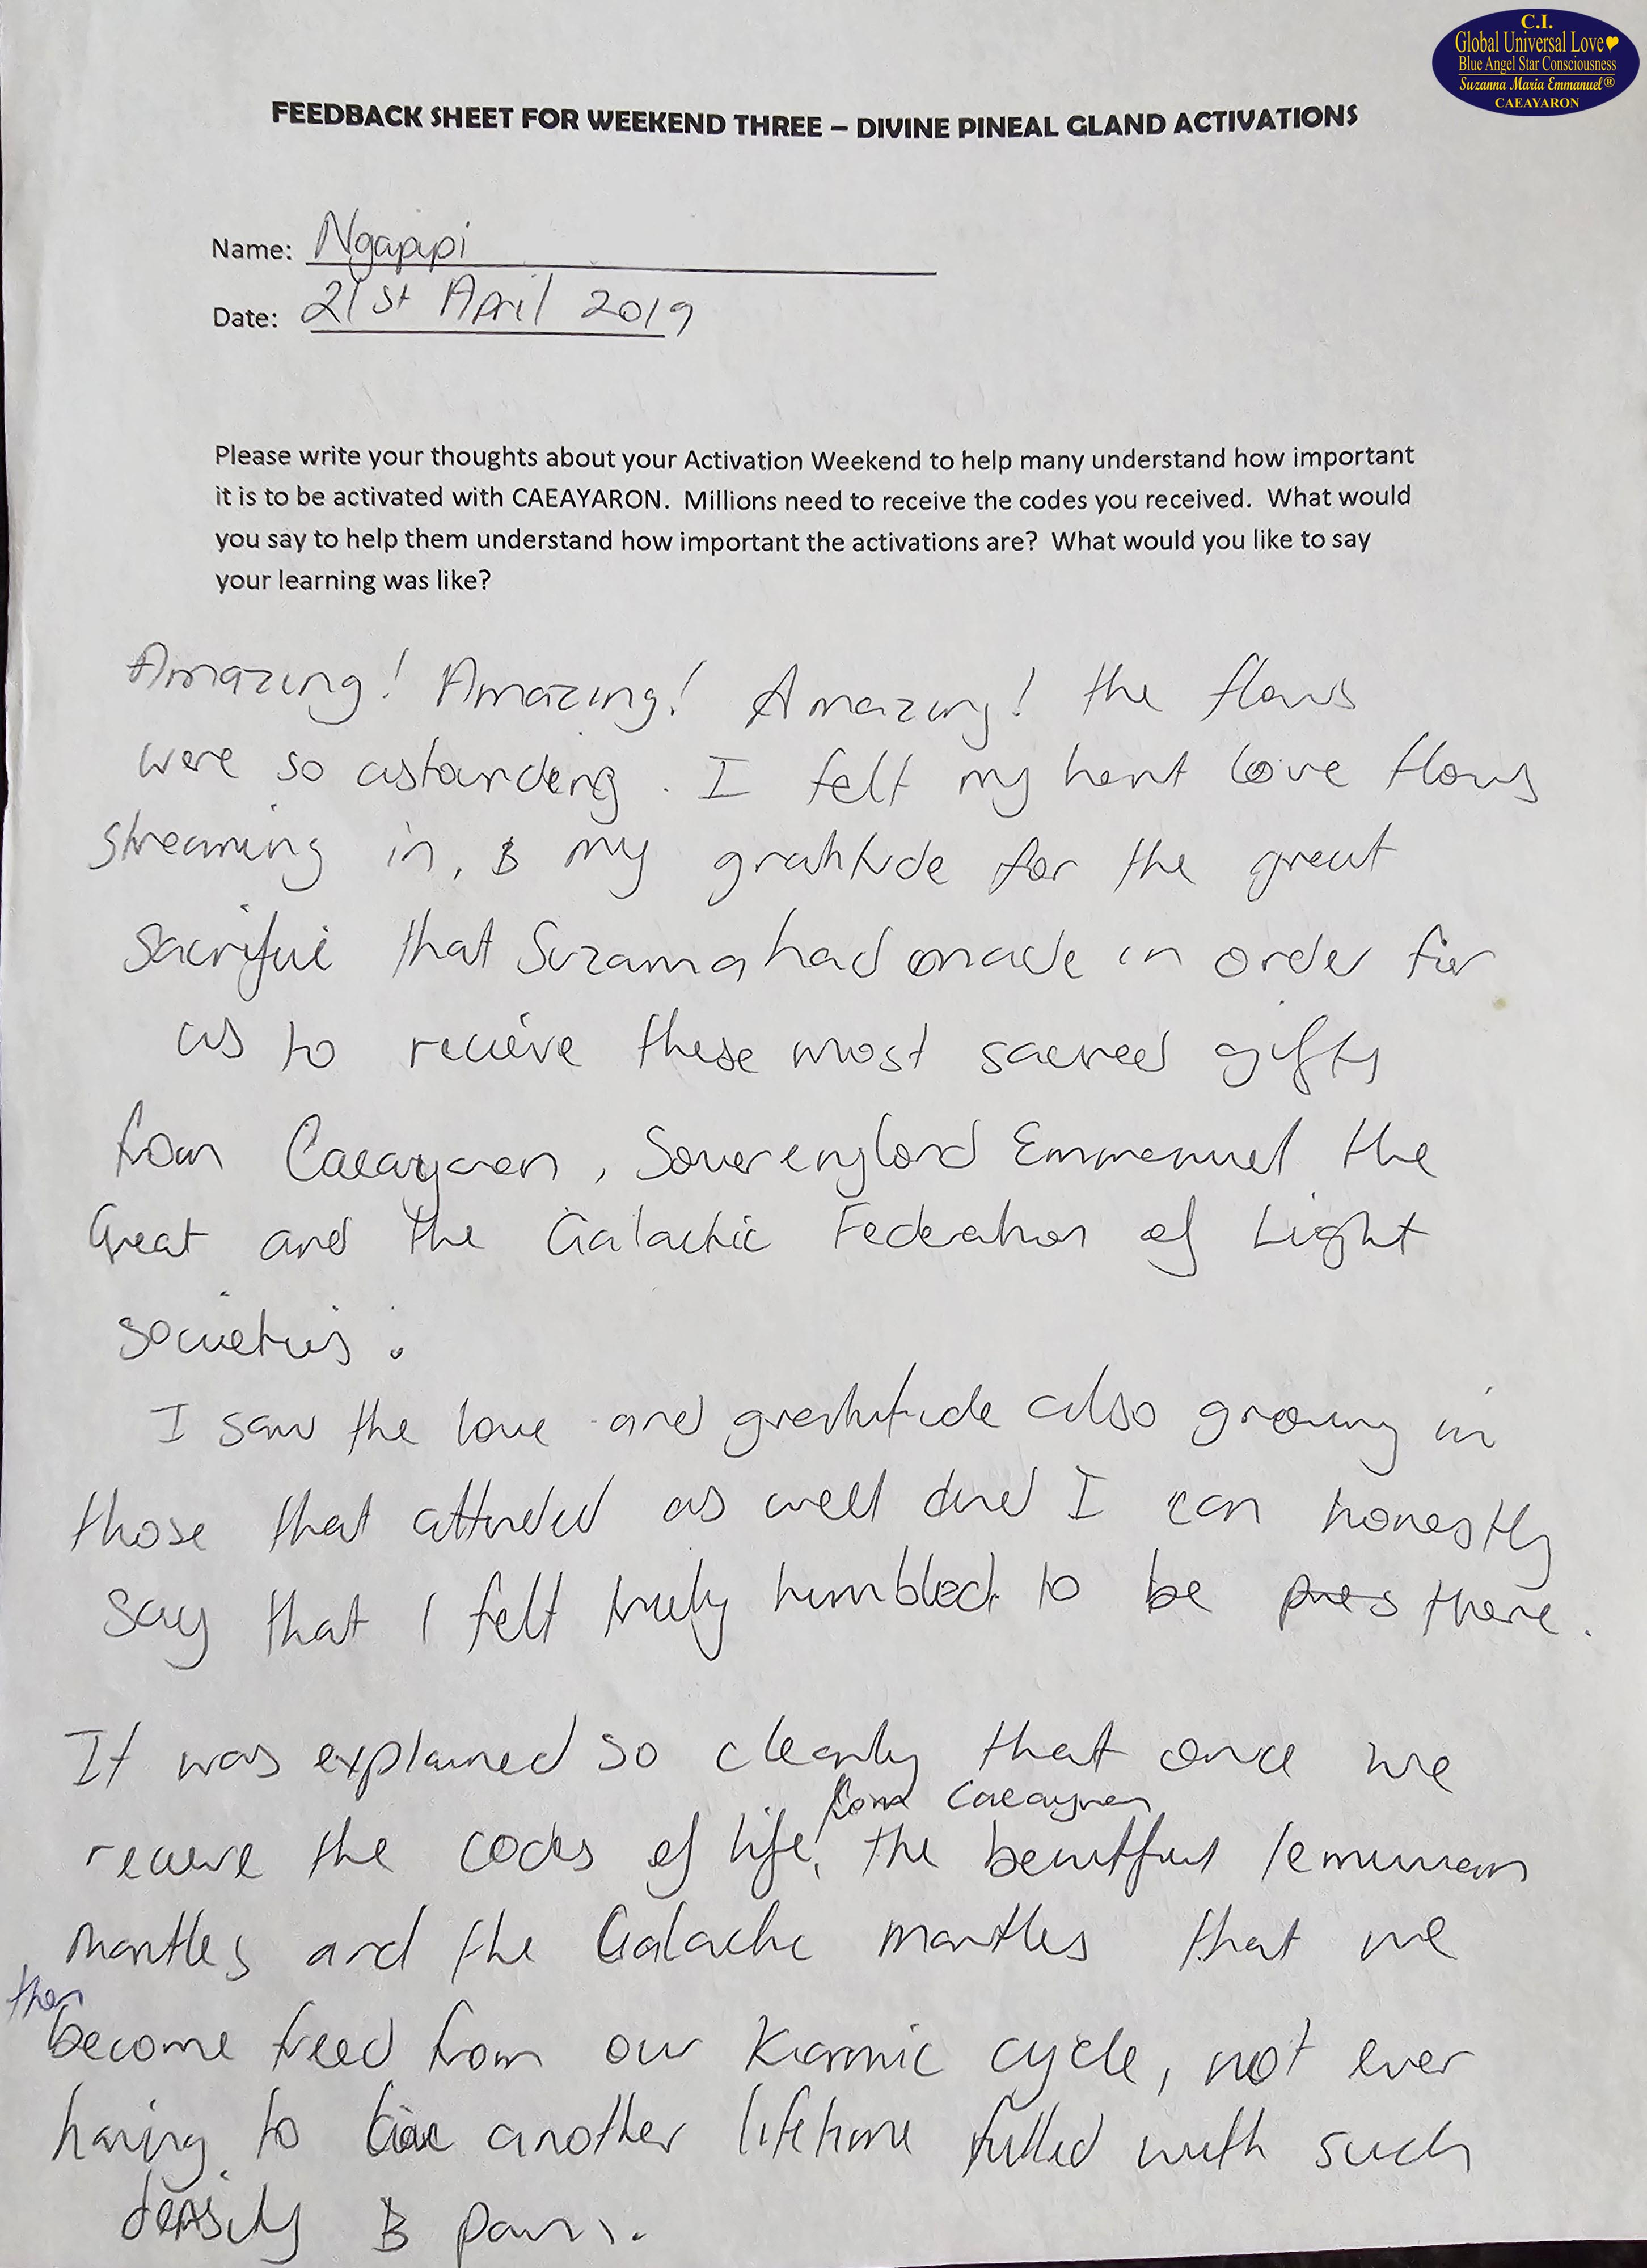 C.I.
Global Universal Love
Blue Angel Star Consciousness
Suzanna Maria Emmanuel®
CAEAYARON
FEEDBACK SHEET FOR WEEKEND THREE – DIVINE PINEAL GLAND ACTIVATIONS
Name: Ngapipi
Date: 21st April 2019
Please write your thoughts about your Activation Weekend to help many understand how important
it is to be activated with CAEAYARON. Millions need to receive the codes you received. What would
you say to help them understand how important the activations are? What would you like to say
your learning was like?
Amazing! Amazing! Amazing! the flows
were so astounding. I felt my heart love flows
streaming in, & my gratitude for the great
sacrifice that Suzanna had made in order for
us to recieve these most sacred gifts
from Caeayaron, Soverenglord Emmanuel the
Great and the Galactic Federation of Light
societies.
I saw the love and gratitude also growing in
those that attended as well and I can honestly
say that I felt truly humbled to be pres there.
It was explained so clearly that once we
from Caeayaron
receive the codes of life, the beautiful lemurian
mantles and the Galactic mantles that we
then
become freed from our Karmic cycle, not ever
having to live another lifetime filled with such
density & pain.